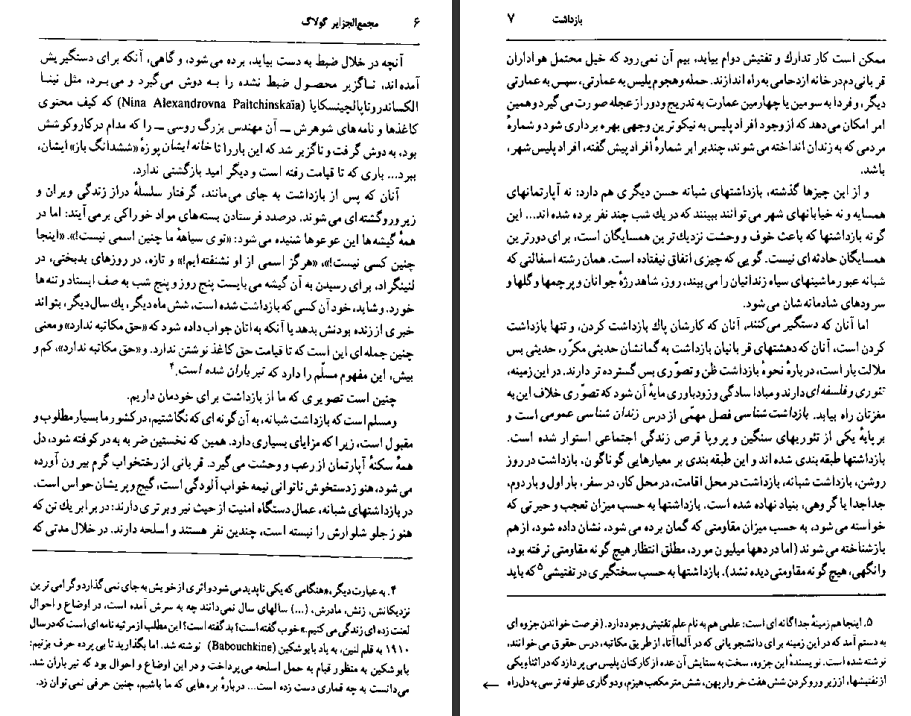 ۶ مجمع‌الجزایر گولاگ
آنچه در خلال ضبط به دست بیاید، برده می‌شود، و گاهی، آنکه برای دستگیریش
آمده‌اند، ناگزیر محصول ضبط نشده را به دوش می‌گیرد و می‌برد، مثل نینا
الکساندروناپالچینسکایا (Nina Alexandrovna Paltchinskaïa) که کیف محتوی
کاغذها و نامه‌های شوهرش ــ آن مهندس بزرگ روسی ــ را که مدام در کار و کوشش
بود، به دوش گرفت و ناگزیر شد که این بار را تا خانه ایشان پوزهٔ «ششدانگ باز» ایشان،
ببرد... باری که تا قیامت رفته است و دیگر امید بازگشتی ندارد.
آنان که پس از بازداشت به جای می‌مانند، گرفتار سلسلهٔ دراز زندگی ویران و
زیر و رو گشته‌ای می‌شوند. درصدد فرستادن بسته‌های مواد خوراکی برمی‌آیند: اما در
همهٔ گیشه‌ها این عوعوها شنیده می‌شود: «توی سیاههٔ ما چنین اسمی نیست!». «اینجا
چنین کسی نیست!»، «هرگز اسمی از او نشنفته‌ایم!» و تازه، در روزهای بدبختی، در
لنینگراد، برای رسیدن به آن گیشه می‌بایست پنج روز و پنج شب به صف ایستاد و تنه‌ها
خورد. و شاید، خود آن کسی که بازداشت شده است، شش ماه دیگر، یك سال دیگر، بتواند
خبری از زنده بودنش بدهد یا آنکه به اتان جواب داده شود که «حق مکاتبه ندارد» و معنی
چنین جمله‌ای این است که تا قیامت حق کاغذ نوشتن ندارد. و «حق مکاتبه ندارد»، کم و
بیش، این مفهوم مسلّم را دارد که تیرباران شده است.۴
چنین است تصویری که ما از بازداشت برای خودمان داریم.
و مسلم است که بازداشت شبانه، به آن گونه‌ای که نگاشتیم، در کشور ما بسیار مطلوب و
مقبول است، زیرا که مزایای بسیاری دارد. همین که نخستین ضربه به در کوفته شود، دل
همهٔ سکنهٔ آپارتمان از رعب و وحشت می‌گیرد. قربانی از رختخواب گرم بیرون آورده
می‌شود، هنوز دستخوش ناتوانی نیمه خواب آلودگی است، گیج و پریشان حواس است.
در بازداشتهای شبانه، عمال دستگاه امنیت از حیث نیرو برتری دارند: در برابر یك تن که
هنوز جلو شلوارش را نبسته است، چندین نفر هستند و اسلحه دارند. در خلال مدتی که
۴. به عبارت دیگر، «هنگامی که یکی ناپدید می‌شود و اثری از خویش به جای نمی‌گذارد و گرامی‌ترین
نزدیکانش، زنش، مادرش، (...) سالهای سال نمی‌دانند چه به سرش آمده است، در اوضاع و احوال
لعنت زده‌ای زندگی می‌کنیم.» خوب گفته است؟ بد گفته است؟ این مطلب از مرثیه نامه‌ای است که در سال
۱۹۱۰ به قلم لنین، به یاد بابوشکین (Babouchkine) نوشته شد. اما بگذارید تا بی پرده حرف بزنیم:
بابوشکین به منظور قیام به حمل اسلحه می‌پرداخت و در این اوضاع و احوال بود که تیرباران شد.
می‌دانست به چه قماری دست زده است... دربارهٔ بره‌هایی که ما باشیم، چنین حرفی نمی‌توان زد.
بازداشت ۷
ممکن است کار تدارك و تفتیش دوام بیابد، بیم آن نمی‌رود که خیل محتمل هواداران
قربانی دم در خانه ازدحامی به راه اندازند. حمله و هجوم پلیس به عمارتی، سپس به عمارتی
دیگر، و فردا به سومین یا چهارمین عمارت به تدریج و دور از عجله صورت می‌گیرد و همین
امر امکان می‌دهد که از وجود افراد پلیس به نیکوترین وجهی بهره برداری شود و شمارهٔ
مردمی که به زندان انداخته می‌شوند، چند برابر شمارهٔ افراد پیش گفته، افراد پلیس شهر،
باشد.
و از این چیزها گذشته، بازداشتهای شبانه حسن دیگری هم دارد: نه آپارتمانهای
همسایه و نه خیابانهای شهر می‌توانند ببینند که در یك شب چند نفر برده شده‌اند... این
گونه بازداشتها که باعث خوف و وحشت نزدیك‌ترین همسایگان است، برای دورترین
همسایگان حادثه‌ای نیست. گویی که چیزی اتفاق نیفتاده است. همان رشته اسفالتی که
شبانه عبور ماشینهای سیاه زندانیان را می‌بیند، روز، شاهد رژهٔ جوانان و پرچمها و گلها و
سرودهای شادمانه شان می‌شود.
اما آنان که دستگیر می‌کنند، آنان که کارشان پاك بازداشت کردن، و تنها بازداشت
کردن است، آنان که دهشتهای قربانیان بازداشت به گمانشان حدیثی مکرّر، حدیثی بس
ملالت بار است، دربارهٔ نحوهٔ بازداشت ظن و تصوّری بس گسترده‌تر دارند. در این زمینه،
تئوری و فلسفه‌ای دارند و مبادا سادگی و زودباوری مایهٔ آن شود که تصوّری خلاف این به
مغزتان راه بیابد. بازداشت شناسی فصل مهمّی از درس زندان شناسی عمومی است و
بر پایهٔ یکی از تئوریهای سنگین و پر و پا قرص زندگی اجتماعی استوار شده است.
بازداشتها طبقه‌بندی شده‌اند و این طبقه بندی بر معیارهایی گوناگون، بازداشت در روز
روشن، بازداشت شبانه، بازداشت در محل اقامت، در محل کار، در سفر، بار اول و بار دوم،
جداجدا یا گروهی، بنیاد نهاده شده است. بازداشتها به حسب میزان تعجب و حیرتی که
خواسته می‌شود، به حسب میزان مقاومتی که گمان برده می‌شود، نشان داده شود، از هم
بازشناخته می‌شوند (اما در دهها میلیون مورد، مطلق انتظار هیچ گونه مقاومتی نرفته بود،
وانگهی، هیچ گونه مقاومتی دیده نشد). بازداشتها به حسب سختگیری در تفتیشی۵ که باید
۵. اینجا هم زمینهٔ جداگانه‌ای است: علمی هم به نام علم تفتیش وجود دارد. (فرصت خواندن جزوه‌ای
به دستم آمد که در این زمینه برای دانشجویانی که در آلما آتا، از طریق مکاتبه، درس حقوق می‌خوانند،
نوشته شده است. نویسندهٔ این جزوه، سخت به ستایش آن عده از کارکنان پلیس می‌پردازد که در اثنای یکی
از تفتیشها، از زیر و رو کردن شش هفت خروار پهن، شش متر مکعب هیزم، و دو گاری علوفه ترسی به دل راه
←